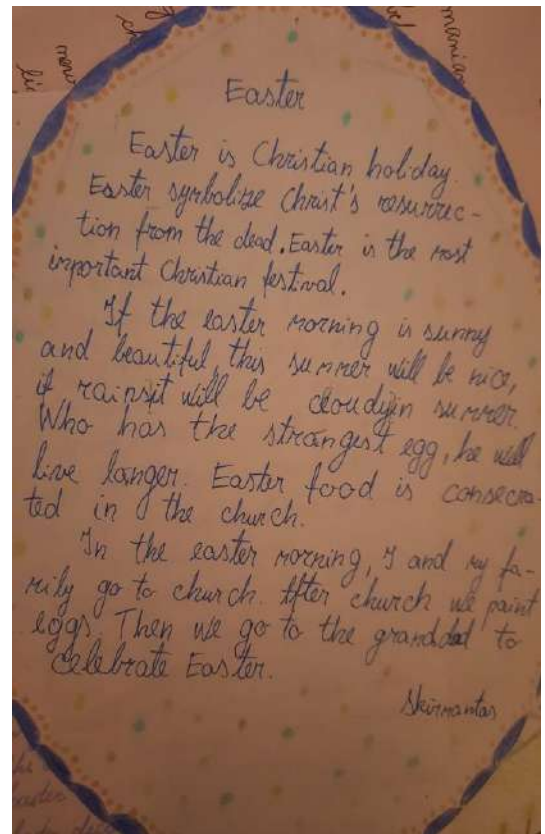 Easter
Easter is Christian holiday.
Easter symbolize Christ's resurrec-
tion from the dead. Easter is the most
important Christian festival.
If the easter morning is sunny
and beautiful, this summer will be nice,
if rainsit will be cloudyin summer.
Who has the strangest egg, he will
live longer. Easter food is consecra-
ted in the church.
In the easter morning, I and my fa-
mily go to church. After church we paint
eggs. Then we go to the granddad to
celebrate Easter.
Skirmantas